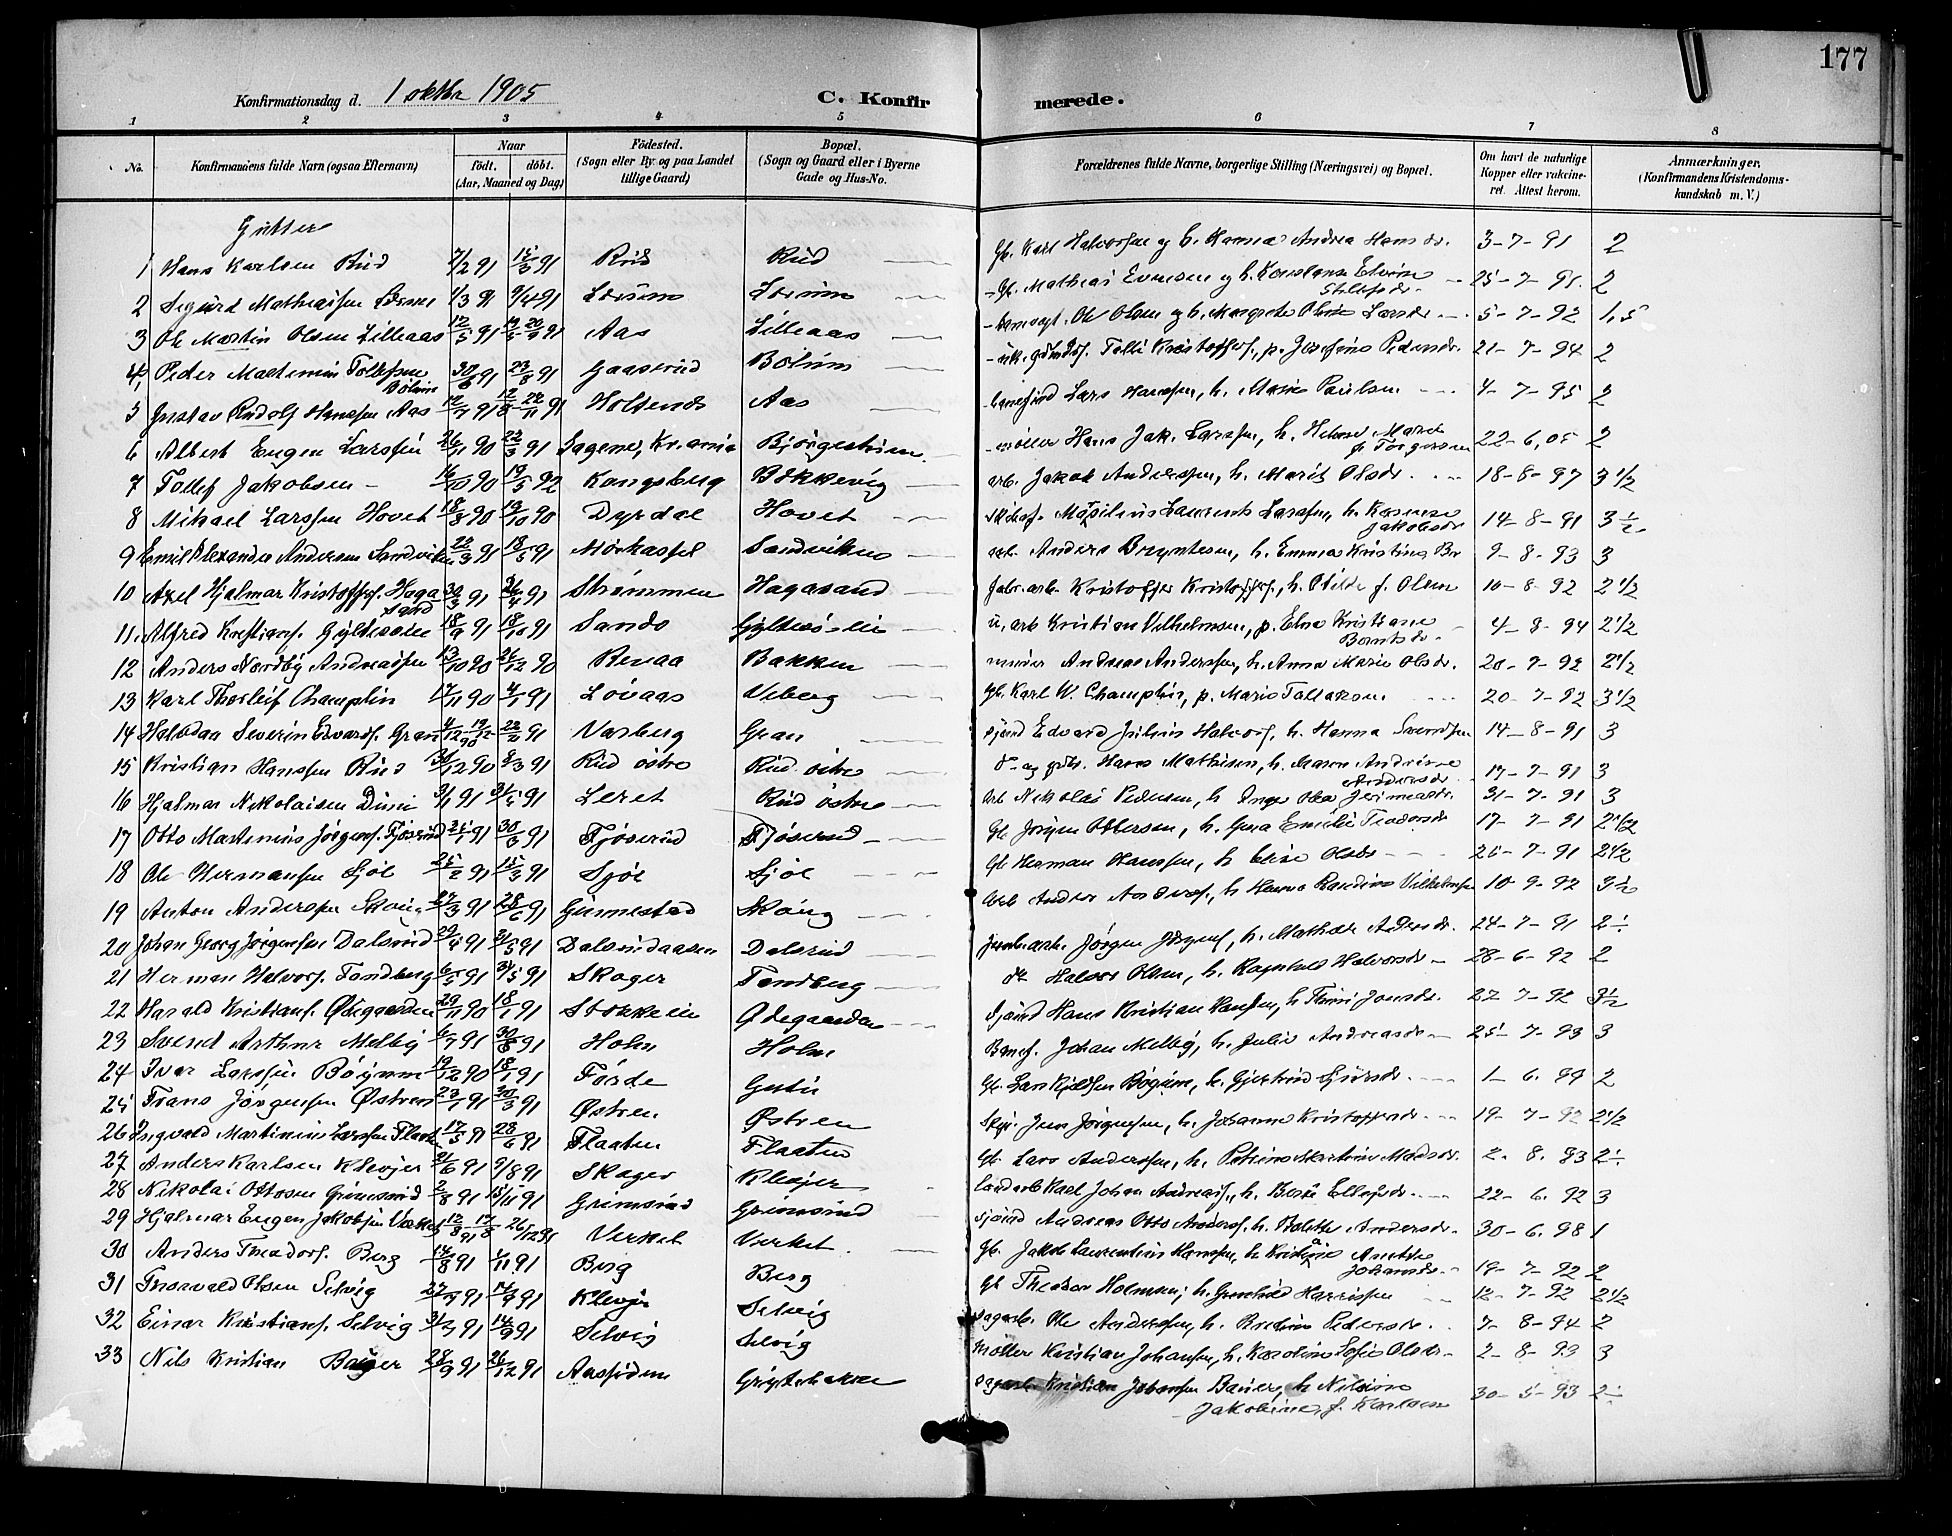 177
Konfirmationsdag d. 1 oktbr 1905
C. Konfirmerede.
1 2 3 4 5 6 7 8
No. Konfirmandens fulde Navn (ogsaa Efternavn) Naar födt. döbt. (Aar, Maaned og Dag) Födested. (Sogn eller By og paa Landet tillige Gaard) Bopæl. (Sogn og Gaard eller i Byerne Gade og Hus-No. Forældrenes fulde Navne, borgerlige Stilling (Næringsvei) og Bopæl. Om havt de naturlige Kopper eller vaccineret. Attest herom. Anmærkninger, (Konfirmandens Kristendomskundskab m.V.)
Gutter
1 Hans Karlsen Rud 7/2 91 15/3 91 Rud Rud Gb. Karl Halvorsen og h. Hanna Andrea Hansdr. 3-7-91 2
2 Sigurd Mathiassen 1/3 91 9/4 91 Gb. Mathias Evensen og h. 25-7-91. 2
3 Ole Martin Olsen Lilleaas 12/5 91 91 Aas Lilleaas Ole Olsen og h. Margrete Oline Larsdr. 5-7-92 1,5
4 Peder Martinius Tollefsen Bölum 30/6 91 23/8 91 Gaaserud Bölum 21-7-94 2
5 Gustav Rudolf Hanssen Aas 12/7 91 91 Holtend Aas Lars Hanssen, h. Marie Paulsen 4-7-95 2
6 Albert Eugen Larssen 26/11 90 22/3 91 Sagene, Kr.ania Bjørgestrøm möller Hans Jak. Larssen, h. Helene Marie f. Torgersen 22-6,05 2
7 Tollef Jakobsen 16/10 90 19/5 92 Kongsberg Bökkevig arb. Jakob Anderssen, h. Marit Olsdr. 18-8-97 3 1/2
8 Mikael Larssen Hovet 18/8 90 19/10 90 Dyrdal Hovet Laurents Larssen, h. Karense Jakobsdr 14-8-91 3 1/2
9 Emil Alexander Andersen Sandviken 22/3 91 18/5 91 Mörkassel Sandviken arb. Anders Bregntesen, h. Emma Kristine 9-8-93 3
10 Axel Hjalmar Kristoffs. Hagasand 30/3 91 26/4 91 Strömmen Hagasand fabr.arb. Kristoffer Kristoffers., h. Otilde f. Olsen 10-8-92 2 1/2
11 Alfred Krestians. 18/9 91 18/10 91 Sando u. arb Kristian Vilhelmsen, p. Elna Kristiane Berntsdr. 4-8-94 2 1/2
12 Anders Nordby Andreassen 13/10 90 26/12 90 Revaa Bakken murer Andreas Anderssen, h. Anna Marie Olsdr. 20-7-92 2 1/2
13 Karl Thorleif Champlin 17/11 90 4/1 91 Lövaas Viberg Gb. Karl W. Champlin, p. Marie Tollaksen 20-7-92 3 1/2
14 Halvdan Severin Edvards. Gran 4/12 90 22/2 91 Varberg Gran sjömd Edvard Julius Halvors., h. Hanna Svendsen 14-8-91 3
15 Kristian Hanssen Rud 30/12 90 8/3 91 Rud östre Rud östre do og gbr. Hans Mathisen, h. Maren Andrine Andersdr. 17-7-91 3
16 Hjalmar Nikolaisen 3/1 91 31/5 91 Leret Rud östre Arb Nikolai Pedersen, h Inger Olea Jerimiasdr. 31-7-91 3
17 Otto Martinius Jörgens. Fjöserud 25/1 91 30/3 91 Fjöserud Fjöserud Gb Jörgen Ottersen, h. Gina Emilie Teodorsdr 17-7-91 2 1/2
18 Ole Hermansen Sjöl 25/2 91 15/3 91 Sjöl Sjöl Gb Herman Hanssen, h Elise Olsdr 25-7-91 2 1/2
19 Anton Anderssen Skoug 27/3 91 28/6 91 Gunnestad Skoug Arb Anders Anders., h Hanna Randine Vilhelmsen 10-9-92 3 1/2
20 Johan Georg Jörgensen Dalsrud 29/4 91 31/5 91 Dalsrudaasen Dalsrud jernb.arb. Jörgen Jörgens., h. Mathilde Andersdr. 24-7-91 2 1/2
21 Herman Halvors. Tandberg 6/5 91 31/5 91 Skoger Tandberg do Halvor Olsen, h. Ragnhild Halvorsdr 28-6-92 2
22 Harald Kristians. Ödegaarden 29/11 90 18/1 91 Stokkelie Ödegaarden sjömd Hans Kristian Hansen, h. Jonsdr. 27 7-92 3 1/2
23 Svend Arthur Melby 6/7 91 30/8 91 Holm Holm Banef. Johan Melby, h. Julie Andreasdr 25-7-93 3
24 Ivar Larssen Böyum 19/12 90 18/1 91 Förde Gutu Gb. Lars Kjeldsen Böyum, h. Gjertrud 1-6.99 2
25 Frans Jörgensen Östren 23/1 91 30/3 91 Östren Östren Jens Jörgensen, h. Johanne Kristoffersdr. 19-7-92 2 1/2
26 Ingvald Martinius Larssen Flaaten 17/5 91 28/6 91 Flaaten Flaaten Gb. Lars Anderssen, h. Petrine Martine Madsdr. 2.8.93 2 1/2
27 Anders Karlsen Klevjer 21/6 91 9/8 91 Skoger Klevjer landarb Karl Johan Andreass., h. Berte Ellefsdr. 22-6.92 3
28 Nikolai Ottosen Grimsrud 2/8 91 15/11 91 Grimsrud Grimsrud sjömd Andreas Otto Anders. h. Bolette Andersdr. 30-6.98 1
29 Hjalmar Eugen Jakobsen Værket 12/8 91 26/12 91 Verket Verket Gb. Jakob Laurentius Hanssen, h. Kristiane Anette Johansdr. 19-7-92 2
30 Anders Theodors. Berg 14/8 91 1/11 91 Berg Berg Gb Theodor Holmsen, h. Gunhild Harrissen 12-7-92 2 1/2
31 Thorvald Olsen Selvig 27/7 91 14/9 91 Klevjer Selvig sagarb. Ole Anderssen, h. Pedersdr. 7-8-94 2
32 Einar Kristians. Selvig 31/7 91 14/9 91 Selvig Selvig möller Kristian Johansen, h. Karoline Sofie Olsdr. 2-8-93 3
33 Nils Kristian Bauer 28/9 91 26/12 91 Aassiden Grytebakke sagarb Kristian Johansen Bauer, h Nilsine Jakobine, f. Karlsen 30-5-93 2 1/2